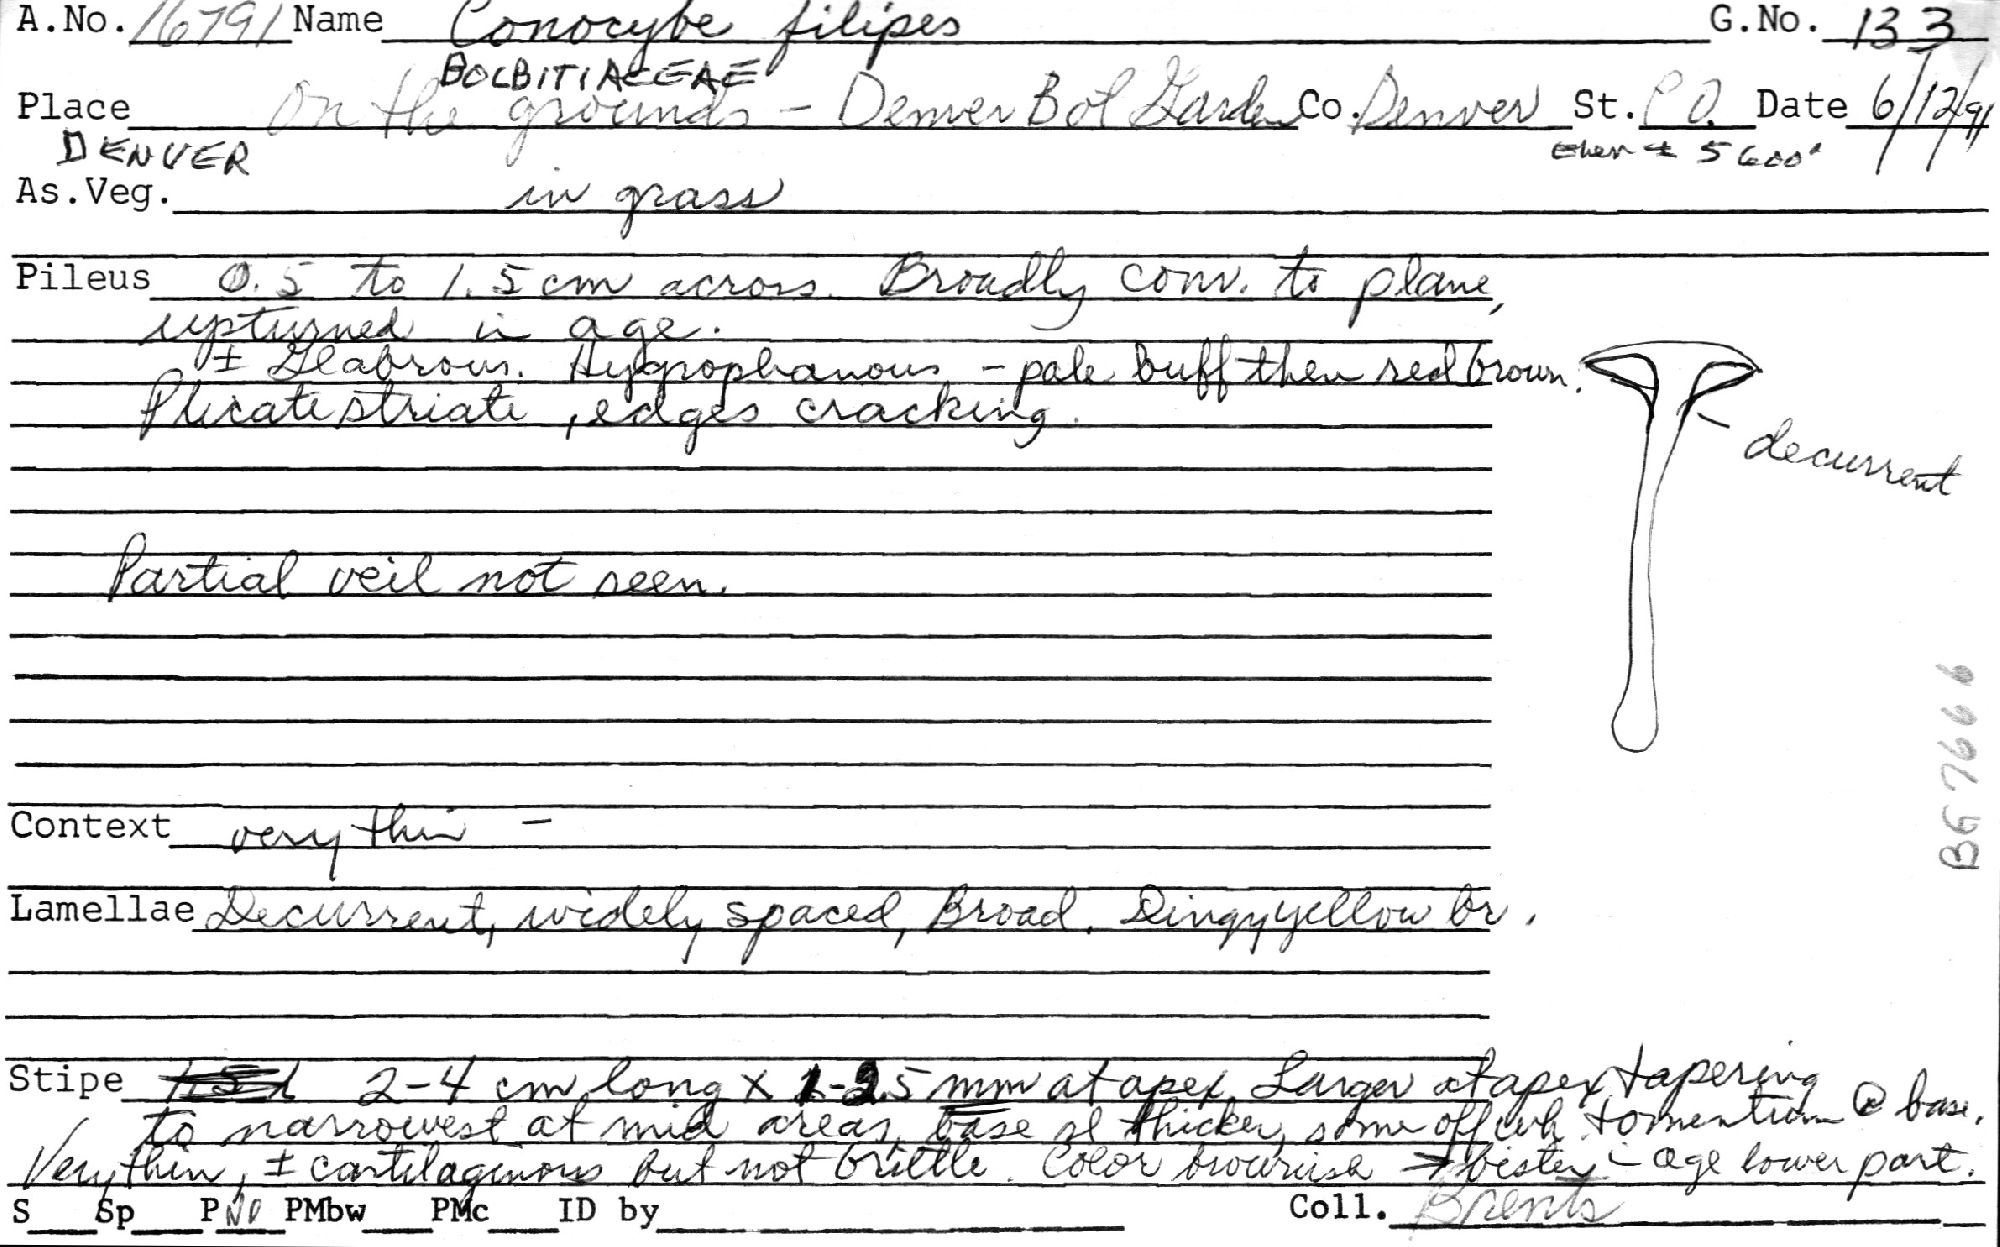 A.No. 16791 Name Conocybe filipes G.No. 133
BOLBITIACEAE
Place On the grounds - Denver Bot Garden Co. Denver St. CO. Date 6/12/91
DENVER
Elev ± 5600'
As.Veg. in grass
Pileus 0.5 to 1.5 cm across. Broadly conv. to plane,
upturned in age.
± Glabrous. Hygrophanous - pale buff then red brown.
Plicate striate, edges cracking.
decurrent
Partial veil not seen.
Context very thin -
Lamellae Decurrent, widely spaced, Broad. Dingy yellow br.
BG 7666
Stipe 2-4 cm long x 1-2.5 mm at apex. Larger at apex tapering
to narrowest at mid areas, base sl thicker, some off wh tomentum @ base.
Very thin, ± cartilaginous but not brittle. Color brownish → bister in age lower part.
S Sp P NO PMbw PMc ID by Coll. Brents